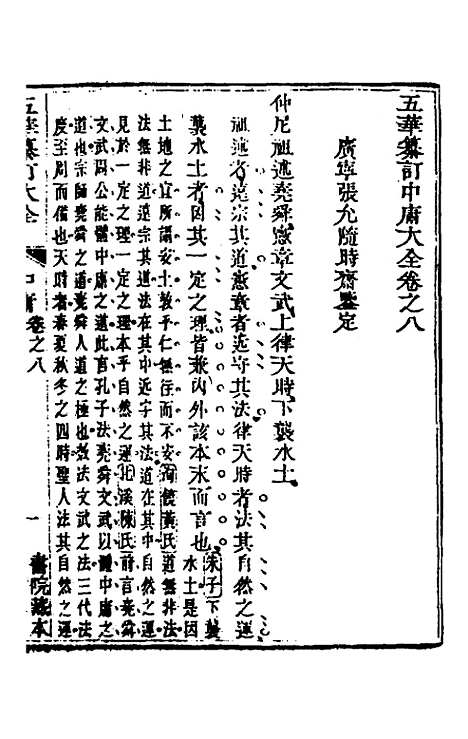 五華纂訂中庸大全卷之八
廣寧張允隨時齋鑒定
仲尼祖述堯舜憲章文武上律天時下襲水土
祖述者遠宗其道憲章者近守其法律天時者法其自然之運
襲水土者因其一定之理皆兼內外該本末而言也
朱子下襲
水土是因
土地之宜所謂安土敦乎仁無往而不安
饒黃氏道無非法
法無非道遠宗其道法在其中近守其法道在其中自然之運
見於一定之理一定之理本乎自然之運
北溪陳氏前言堯舜
文武周公能體中庸之道此言孔子法堯舜文武以體中庸之
道也宗師堯舜之道堯舜人道之極也效法文武之法三代法
度至周而備也天時者春夏秋冬之四時聖人法其自然之運
五華纂訂大全
中庸卷之八
一
書院藏本